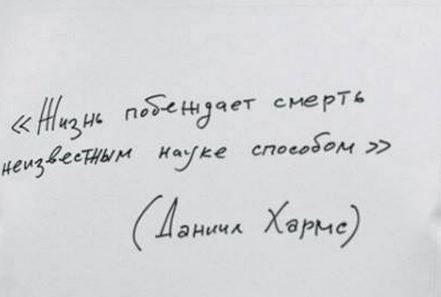 «Жизнь побеждает смерть
неизвестным науке способом»
(Даниил Хармс)